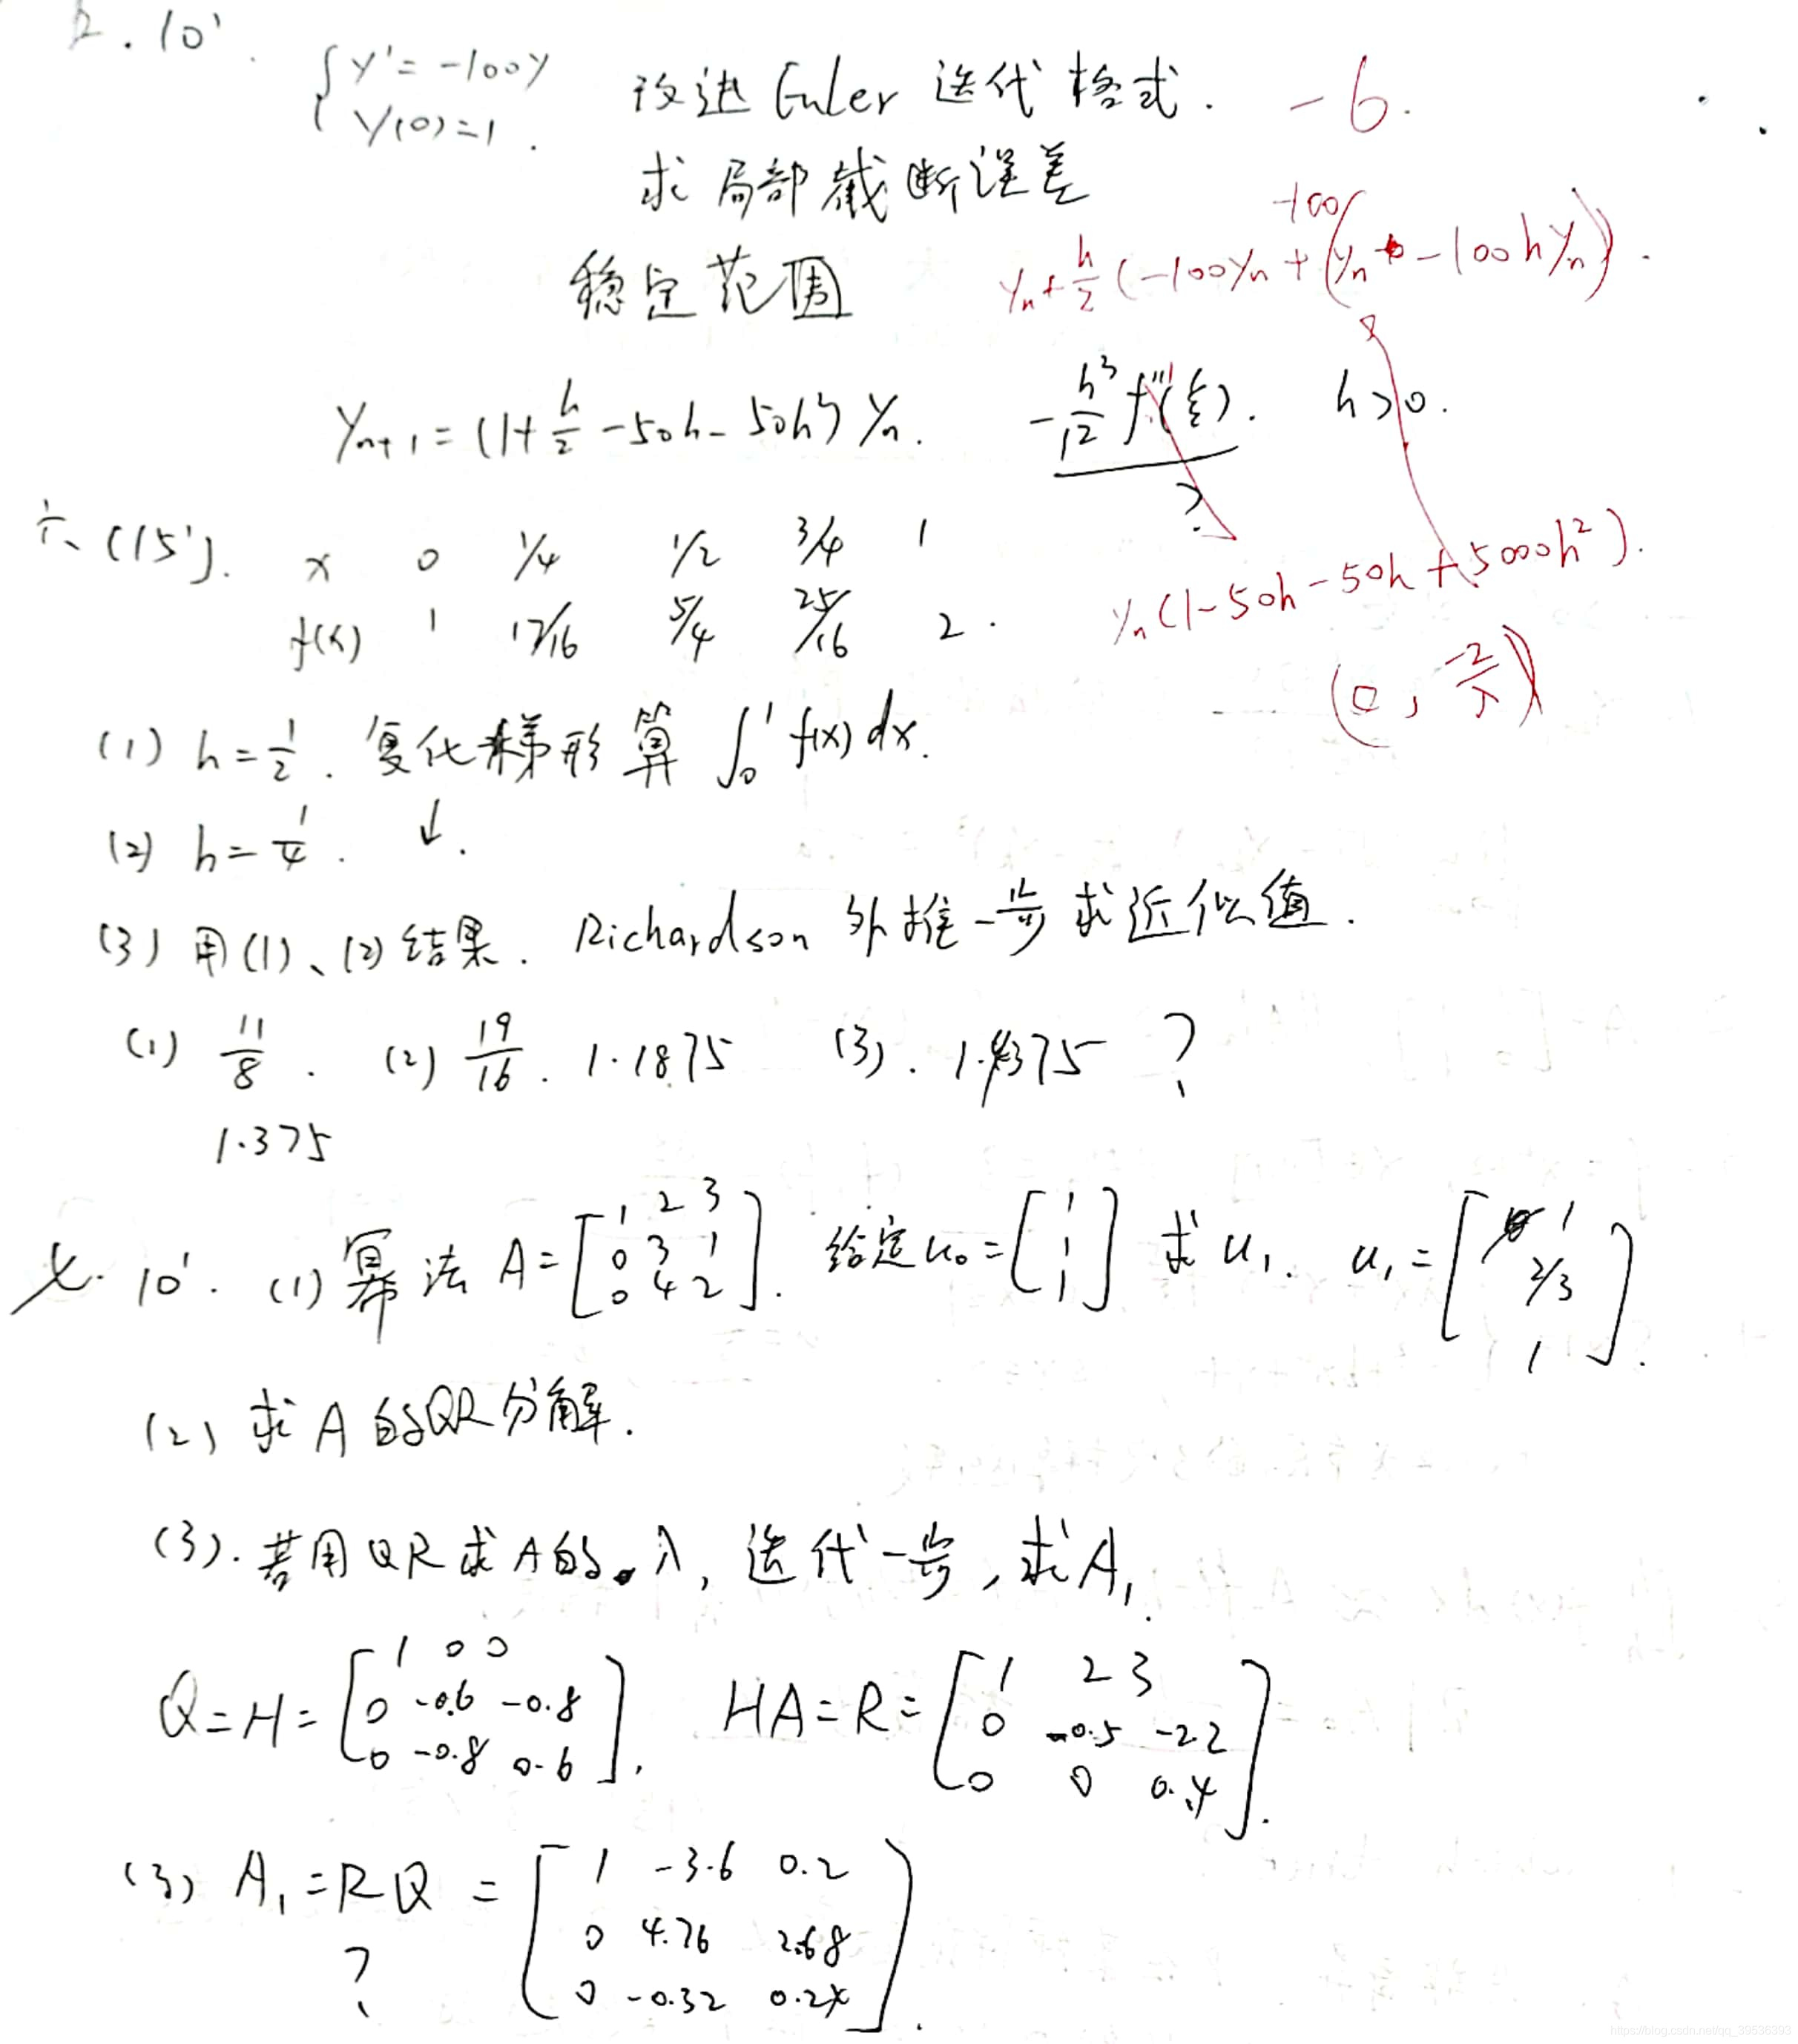 10'. { y' = -100y 改进Euler 迭代格式. -6.
y(0)=1.
求局部截断误差
-100
稳定范围 yn+h/2(-100yn+(yn-100hyn)).
yn+1=(1+h/2-50h-50h²)yn. -h³/12 f'''(ξ). h>0.
?
六、(15'). x 0 1/4 1/2 3/4 1
f(x) 1 17/16 5/4 25/16 2.
yn(1-50h-50h+5000h²).
(0, -2/λ)
(1) h=1/2. 复化梯形算 ∫₀¹f(x)dx.
(2) h=1/4. ↓.
(3) 用(1)、(2)结果. Richardson 外推一步求近似值.
(1) 11/8. (2) 19/16. 1.1875 (3). 1.4375 ?
1.375
七. 10'. (1) 幂法 A=[1 2 3; 0 3 1; 0 4 2]. 给定u₀=[1; 1; 1] 求u₁. u₁=[1; 2/3; 1].
(2) 求A的QR分解.
(3). 若用QR求A的λ, 迭代一步, 求A₁.
Q=H=[1 0 0; 0 -0.6 -0.8; 0 -0.8 0.6]. HA=R=[1 2 3; 0 -0.5 -2.2; 0 0 0.4].
(3) A₁=RQ=[1 -3.6 0.2; 0 4.76 2.68; 0 -0.32 0.24].
?
https://blog.csdn.net/qq_39536393